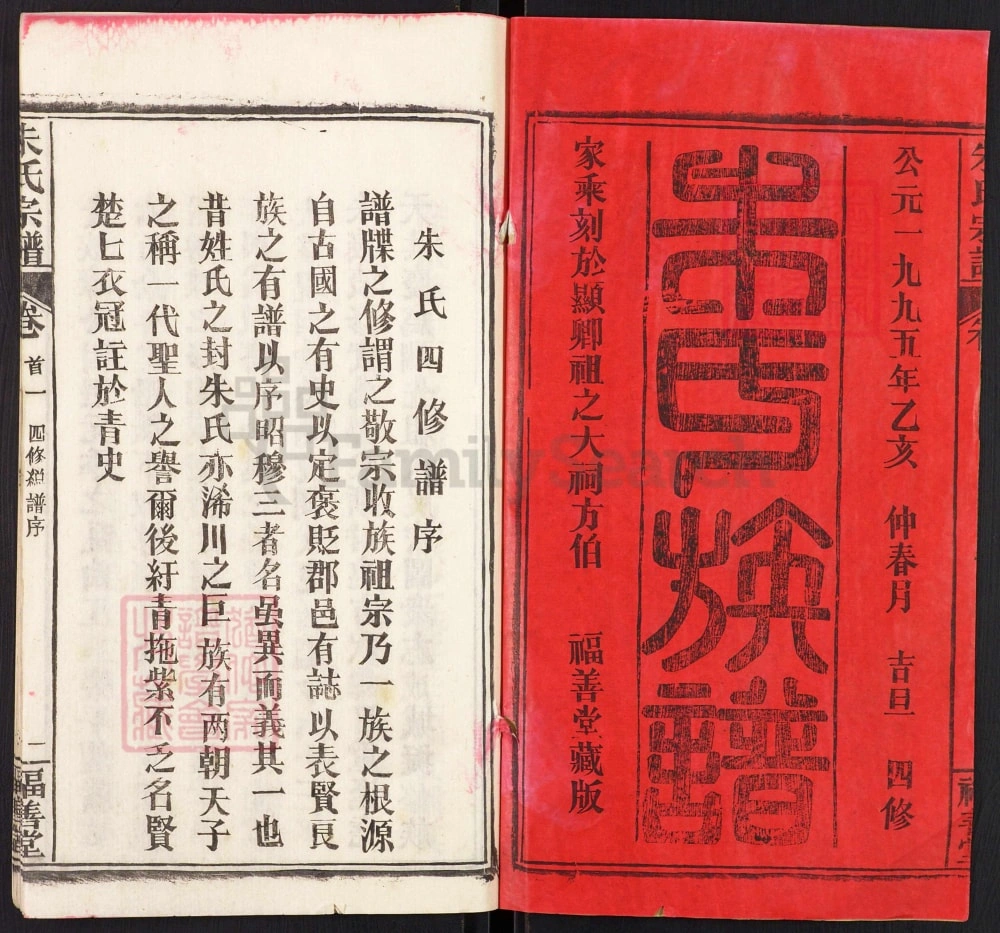 公元一九九五年乙亥 仲春月 吉旦 四修
朱氏族譜
家乘刻於顯卿祖之大祠方伯 福善堂藏版
朱氏四修譜序
譜牒之修謂之敬宗收族祖宗乃一族之根源
自古國之有史以定褒貶郡邑有誌以表賢良
族之有譜以序昭穆三者名虽異而義其一也
昔姓氏之封朱氏亦浠川之巨族有两朝天子
之稱一代聖人之譽爾後紆青拖紫不乏名賢
楚七衣冠註於青史
朱氏宗譜 卷首一 四修譜序 二 福善堂
FamilySearch